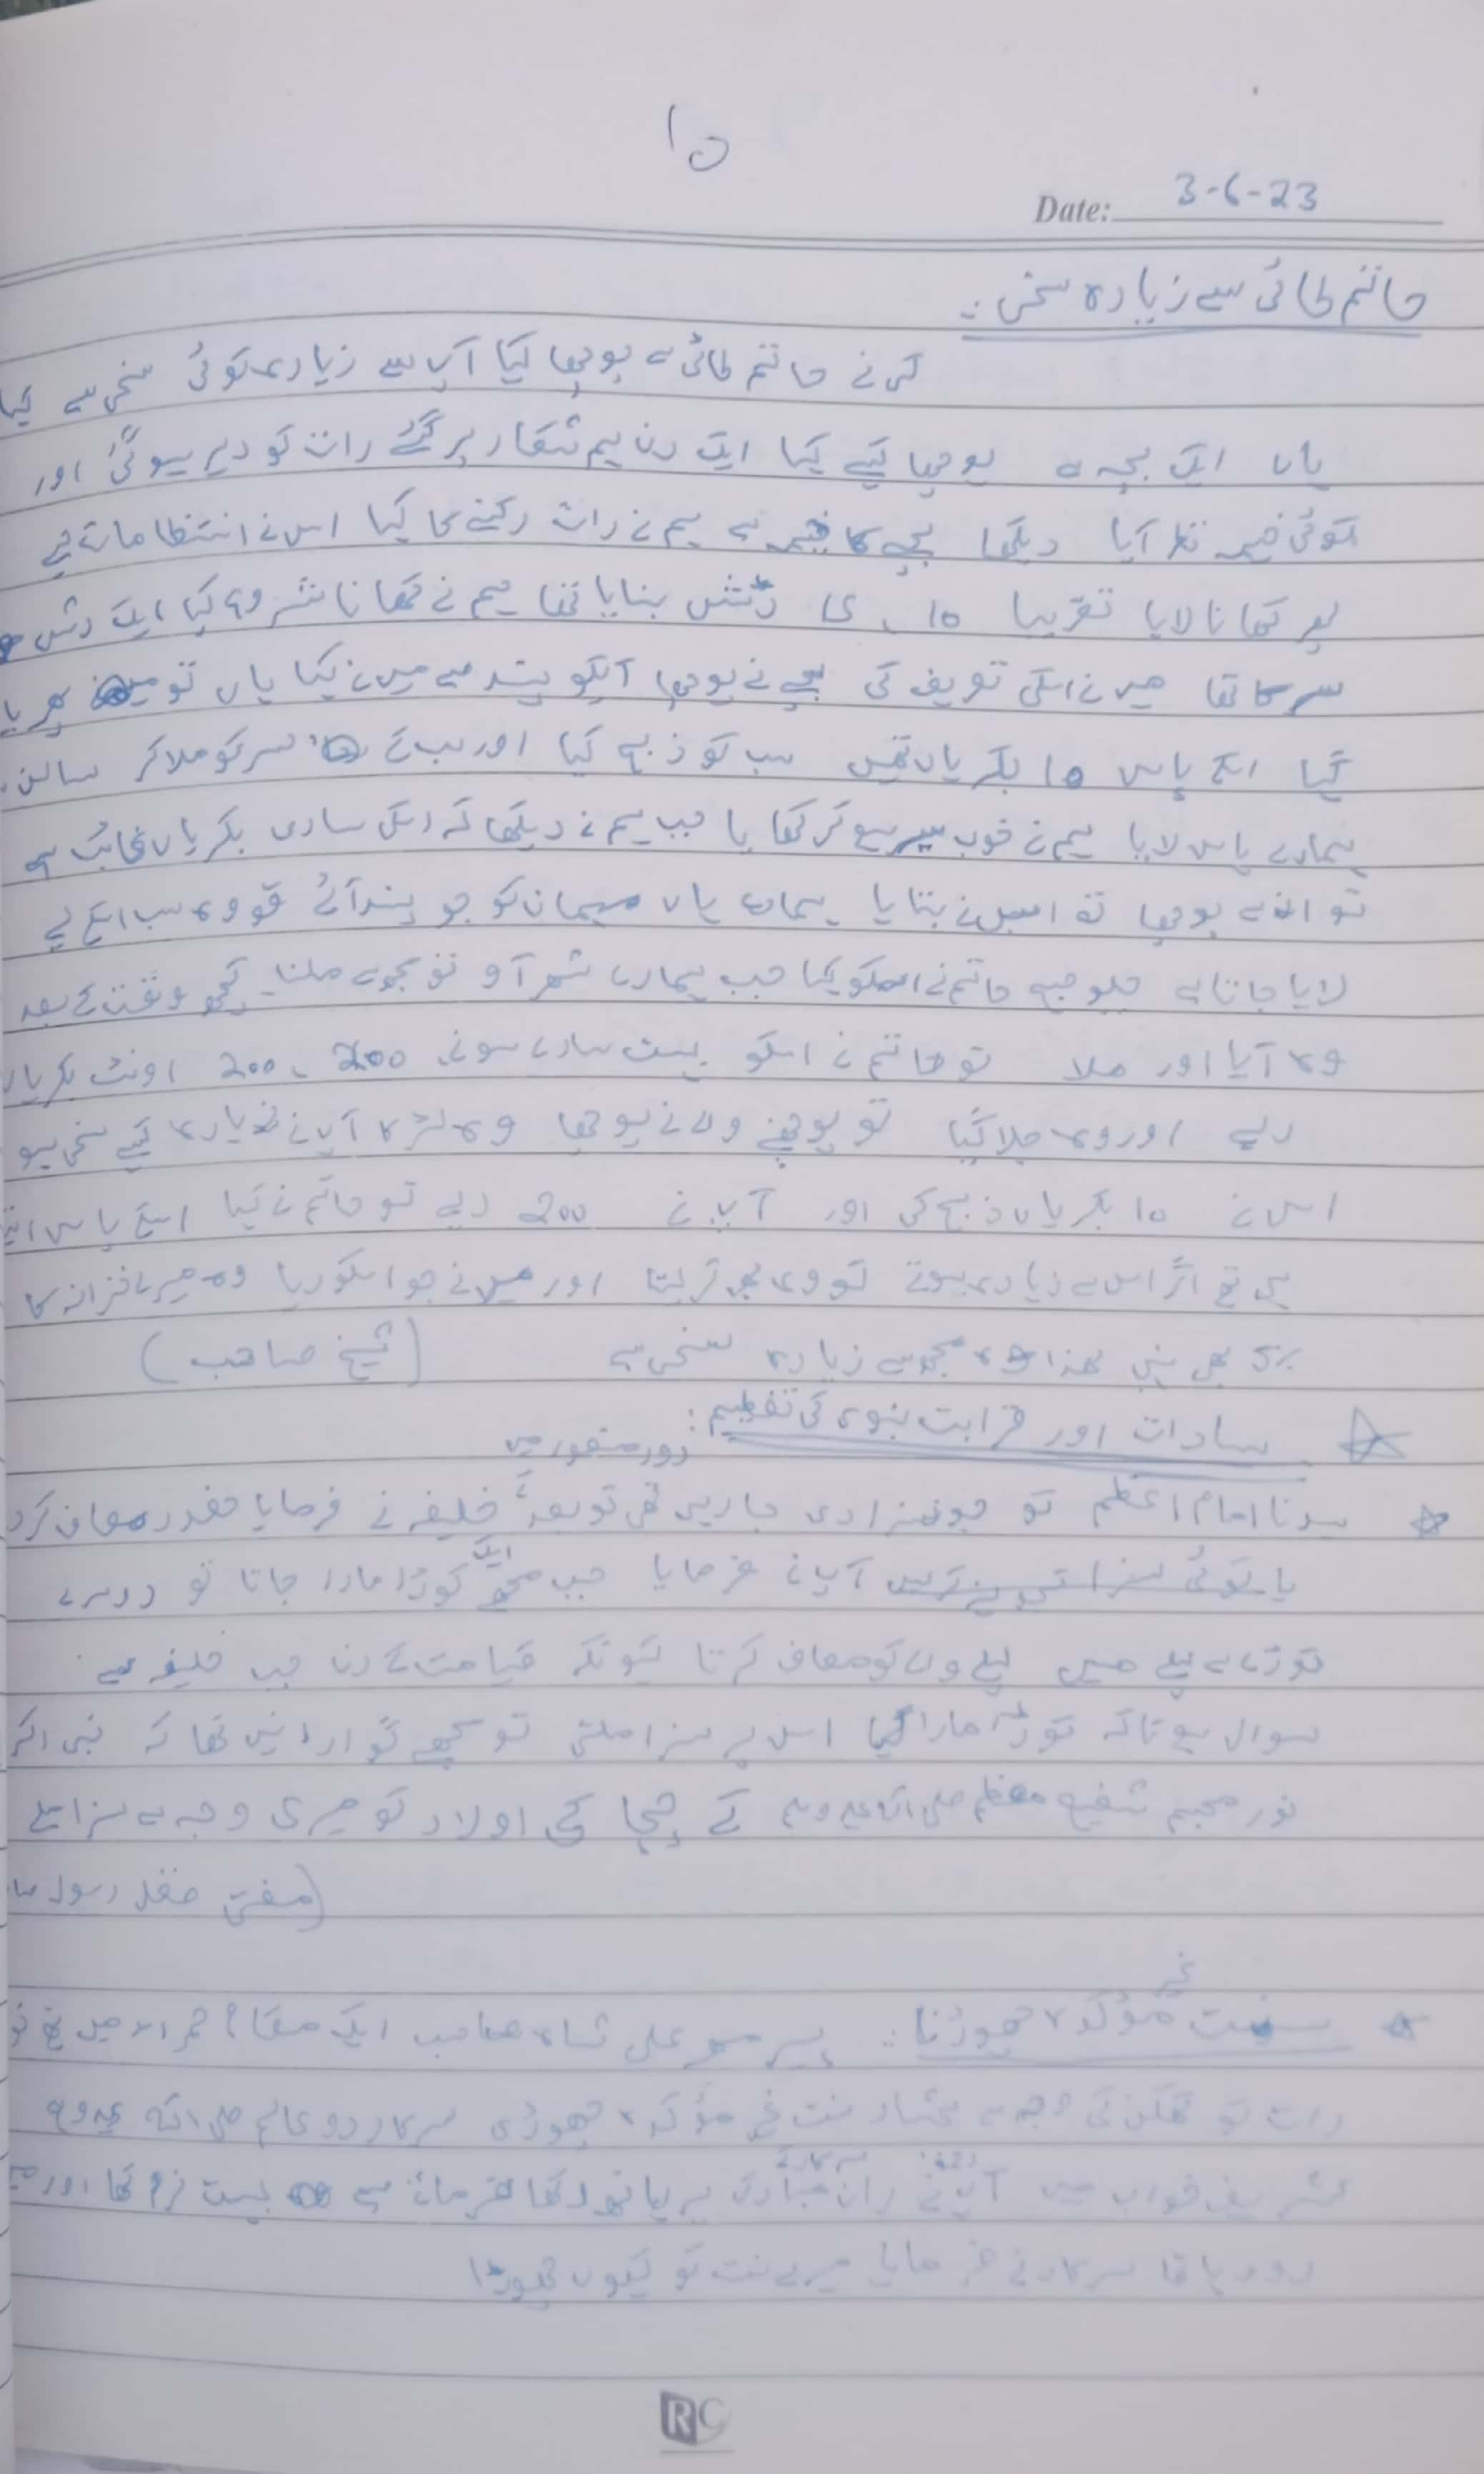 10
Date: 3-6-23
حاتم طائی سے زیادہ سخی :
کسی نے حاتم طائی سے پوچھا کیا آپ سے زیادہ کوئی سخی ہے کہا
ہاں ایک بچہ ہے پوچھا کیسے کہا ایک دن ہم شکار پر گئے رات کو دیر ہوگئی اور
کوئی خیمہ نظر آیا دیکھا بچے کا خیمہ ہے ہم نے رات رکنے کا کہا اس نے انتظامات کیے
پھر کھانا لایا تقریبا 10 ڈش بنایا تھا ہم نے کھانا شروع کیا ایک ڈش
سر کا تھا میں نے اسکی تعریف کی بچے نے پوچھا آپکو پسند ہے میں نے کہا ہاں تو پھر
گیا اسکے پاس 10 بکریاں تھیں سب کو ذبح کیا اور سب کے سر کو ملا کر سالن
ہمارے پاس لایا ہم نے خوب سیر ہوکر کھایا جب ہم نے دیکھا کہ اسکی ساری بکریاں غائب ہے
تو ان سے پوچھا تو اس نے بتایا ہمارے ہاں مہمان کو جو پسند آئے تو وہ سب اسکے لیے
لایا جاتا ہے حاتم نے اسکو کہا جب ہمارے شہر آو تو مجھ سے ملنا کچھ وقت کے بعد
وہ آیا اور ملا تو حاتم نے اسکو بہت سارے سونے، 200، 200 اونٹ بکریاں
دیے اور وہ چلا گیا تو پوچھنے والے نے پوچھا وہ لڑکا آپ سے زیادہ کیسے سخی ہو
اس نے 10 بکریاں ذبح کی اور آپ نے 200 دیے تو حاتم نے کہا اسکے پاس اتنے
ہی تھے اگر اس سے زیادہ ہوتے تو وہ بھی کر لیتا اور میں نے جو اسکو دیا وہ میرے خزانہ کا
5% بھی نہیں لھذا وہ مجھ سے زیادہ سخی ہے (شیخ صاحب)
سادات اور قرابت نبوی کی تعظیم : دور منصور میں
سیدنا امام اعظم کو جو سزا دی جا رہیں تھی تو بعد خلیفہ نے فرمایا معاف کرد
یا کوئی سزا آپ نے فرمایا جب مجھے ایک کوڑا مارا جاتا تو دوسرے
کوڑے سے پہلے میں پہلے والے کو معاف کرتا کیونکہ قیامت کے دن جب خلیفہ سے
سوال ہوتا کہ کوڑے مارا گیا اس پر سزا ملتی تو مجھے گوارا نہیں تھا کہ نبی اکر
نور مجسم شفیع معظم صلی اللہ علیہ وسلم کے چچا کی اولاد کو میری وجہ سے سزا ملے
(مفتی رسول
سنت غیر مؤکدہ چھوڑنا : پیر مہر علی شاہ صاحب ایک مقام حمراء میں تھے تو
رات کو تھکن کی وجہ سے عشاء سنت غیر مؤکدہ چھوڑی سرکار دو عالم صلی اللہ علیہ و
تشریف خواب میں آپ نے سرکار کے ران مبارک پر ہاتھ رکھا فرماتے ہے بہت نرم تھا اور
رو رہا تھا سرکار نے فرمایا میری سنت کو کیوں چھوڑا
RC